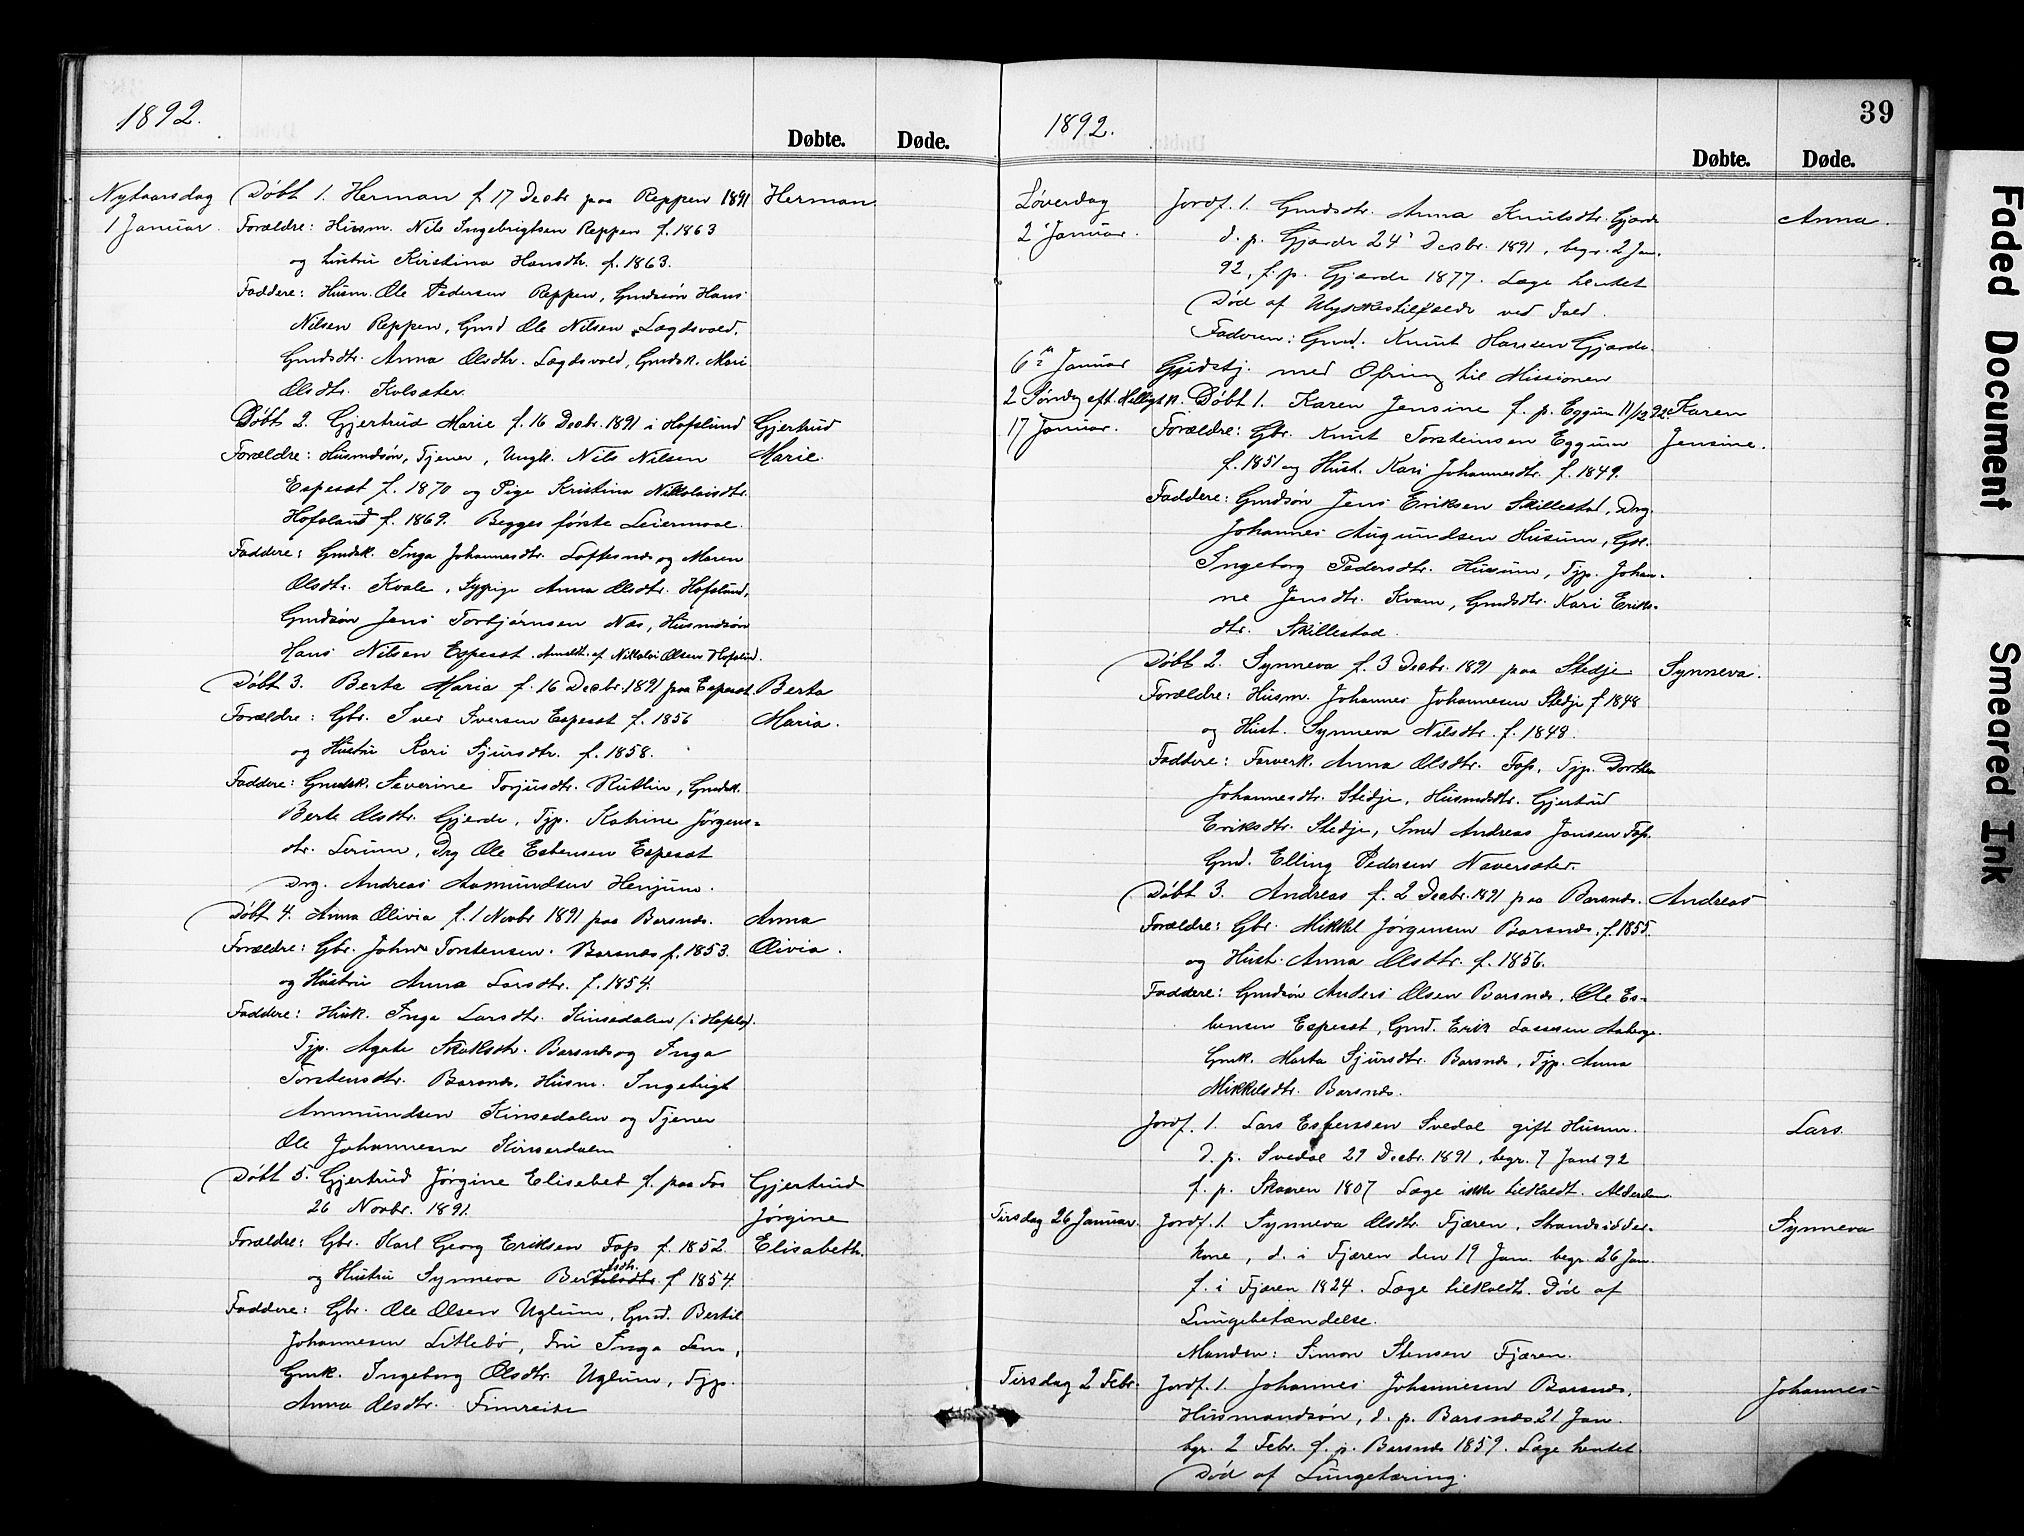 1892.
Døbte. Døde.
Nytaarsdag Døbt 1. Herman f. 17 Decbr paa Reppen 1891 Herman
1 Januar. Forældre: Husm. Nils Ingebrigtsen Reppen f. 1863
og hustru Kirstina Hansdtr. f. 1863.
Faddere: Husm. Ole Pedersen Reppen, Gmdsøn Hans
Nilsen Reppen, Gmd Ole Nilsen Lægdsvold,
Gmdsdtr. Anna Olsdtr. Lægdsvold, Gmdsk. Mari
Olsdtr. Kolsæter.
Døbt 2. Gjertrud Marie f. 16 Decbr. 1891 i Hofslund Gjertrud
Forældre: Husmdsøn, Tjener, Ungk. Nils Nilsen Marie.
Espesæt f. 1870 og Pige Kristina Nikolaisdtr.
Hofslund f. 1869. Begges første Leiermaal.
Faddere: Gmdsk. Inga Johannesdtr. Loftesnes og Maren
Olsdtr. Kvale, Sypige Anna Olsdtr. Hofslund,
Gmdsøn Jens Torbjørnsen Næs, Husmdsøn
Hans Nilsen Espesæt. Anmeldt af Nikolai Olsens Hofslund.
Døbt 3. Berta Maria f. 16 Decbr. 1891 paa Espesæt Berta
Forældre: Gbr. Iver Iversen Espesæt f. 1856 Maria.
og Hustru Kari Sjursdtr. f. 1858.
Faddere: Gmdsk. Severine Torjusdtr. Rutlin, Gmdsk.
Berte Olsdtr. Gjerde, Tjp. Katrine Jørgens=
dtr. Lerum, Drg Ole Esbensen Espesæt
Drg. Andreas Aamundsen Henjum.
Døbt 4. Anna Olivia f. 1 Novbr 1891 paa Barsnes. Anna
Forældre: Gbr. John Torstensen Barsnes f. 1853. Olivia.
og Hustru Anna Larsdtr. f. 1854.
Faddere: Husk. Inga Larsdtr. Kinsedalen / i Hafslo/.
Tjp. Agate Skaksdtr. Barsnes og Inga
Torstensdtr. Barsnes, Husm. Ingebrigt
Ammundsen Kinsedalen og Tjener
Ole Johannesen Kinsedalen
Døbt 5. Gjertrud Jørgine Elisebet f. paa Fos Gjertrud
26 Novbr. 1891. Jørgine
Forældre: Gbr. Karl Georg Eriksen Fos f. 1852. Elisabeth.
og Hustru Synneva f. 1854.
Faddere: Gbr. Ole Olsen Uglum, Gmd. Bertil
Johannesen Litlebø, Fru Inga Lem,
Gmk. Ingeborg Olsdtr. Uglum, Tjp.
Anna Olsdtr. Fimreite
1892. 39
Døbte. Døde.
Løverdag Jordf. 1. Gmdsdtr. Anna Knutsdtr. Gjærde Anna.
2 Januar. d. p. Gjærde 24 Decbr. 1891, begr. 2 Jan.
92, f. p. Gjærde 1877. Læge hentet
Død af Ulykkestilfælde ved Fald.
Faderen: Gmd. Knut Hansen Gjærde.
6 Januar Gudstj. med Ofring til Missionen
2 Søndag eft. Helligt. K. Døbt 1. Karen Jensine f. p. Eggum 11/12 92 Karen
17 Januar. Forældre: Gbr. Knut Torsteinsen Eggum Jensine.
f. 1851 og Hust. Kari Johannesdtr. f. 1849.
Faddere: Gmdsøn Jens Eriksen Skillestad, Drg.
Johannes Augundsen Husum, Gbr.
Ingeborg Pedersdtr. Husum, Tjp. Johan=
ne Jensdtr. Kvam, Gmdsdtr. Kari Eriks=
dtr. Skillestad.
Døbt 2. Synneva f. 3 Decbr. 1891 paa Stedje Synneva.
Forældre: Husm. Johannes Johannesen Stedje f 1848
og Hust. Synneva Nilsdtr. f. 1848.
Faddere: Farverk. Anna Olsdtr. Fos, Tjp. Dorthea
Johannesdtr. Stedje, Husmdsdtr. Gjertrud
Eriksdtr. Stedje, Smed Andreas Jansen Fos.
Gmd. Elling Pedersen Navarsæter.
Døbt 3. Andreas f. 2 Decbr. 1891 paa Barsnes. Andreas
Forældre: Gbr. Mikkel Jørgensen Barsnes, f. 1855.
og Hust. Anna Olsdtr. f. 1856.
Faddere: Gmdsøn Anders Olsen Barsnes, Ole Es=
bensen Espesæt, Gmd. Erik Lassesen Aaberge.
Gmk. Marta Sjursdtr. Barsnes, Tjp. Anna
Mikkelsdtr. Barsnes.
Jordf. 1. Lars Espensen Svedal gift Husm. Lars.
d. p. Svedal 29 Decbr. 1891, begr. 7 Jan 92
f. p. Skaren 1807 Læge ikke tilkaldt. Alderdom.
Tirsdag 26 Januar. Jordf. 1. Synneva Olsdtr. Fjæren, Strandsidder= Synneva
kone, d. i Fjæren den 19 Jan. begr. 26 Jan.
f. i Fjæren 1824. Læge tilkaldt. Død af
Lungebetændelse.
Manden: Simon Stensen Fjæren.
Tirsdag 2 Febr. Jordf. 1. Johannes Johannesen Barsnes, Johannes
Husmandsøn, d. p. Barsnes 21 Jan.
bgr. 2 Febr. f. p. Barsnes 1859. Læge hentet.
Død af Lungetæring.
Faded Document
Smeared Ink